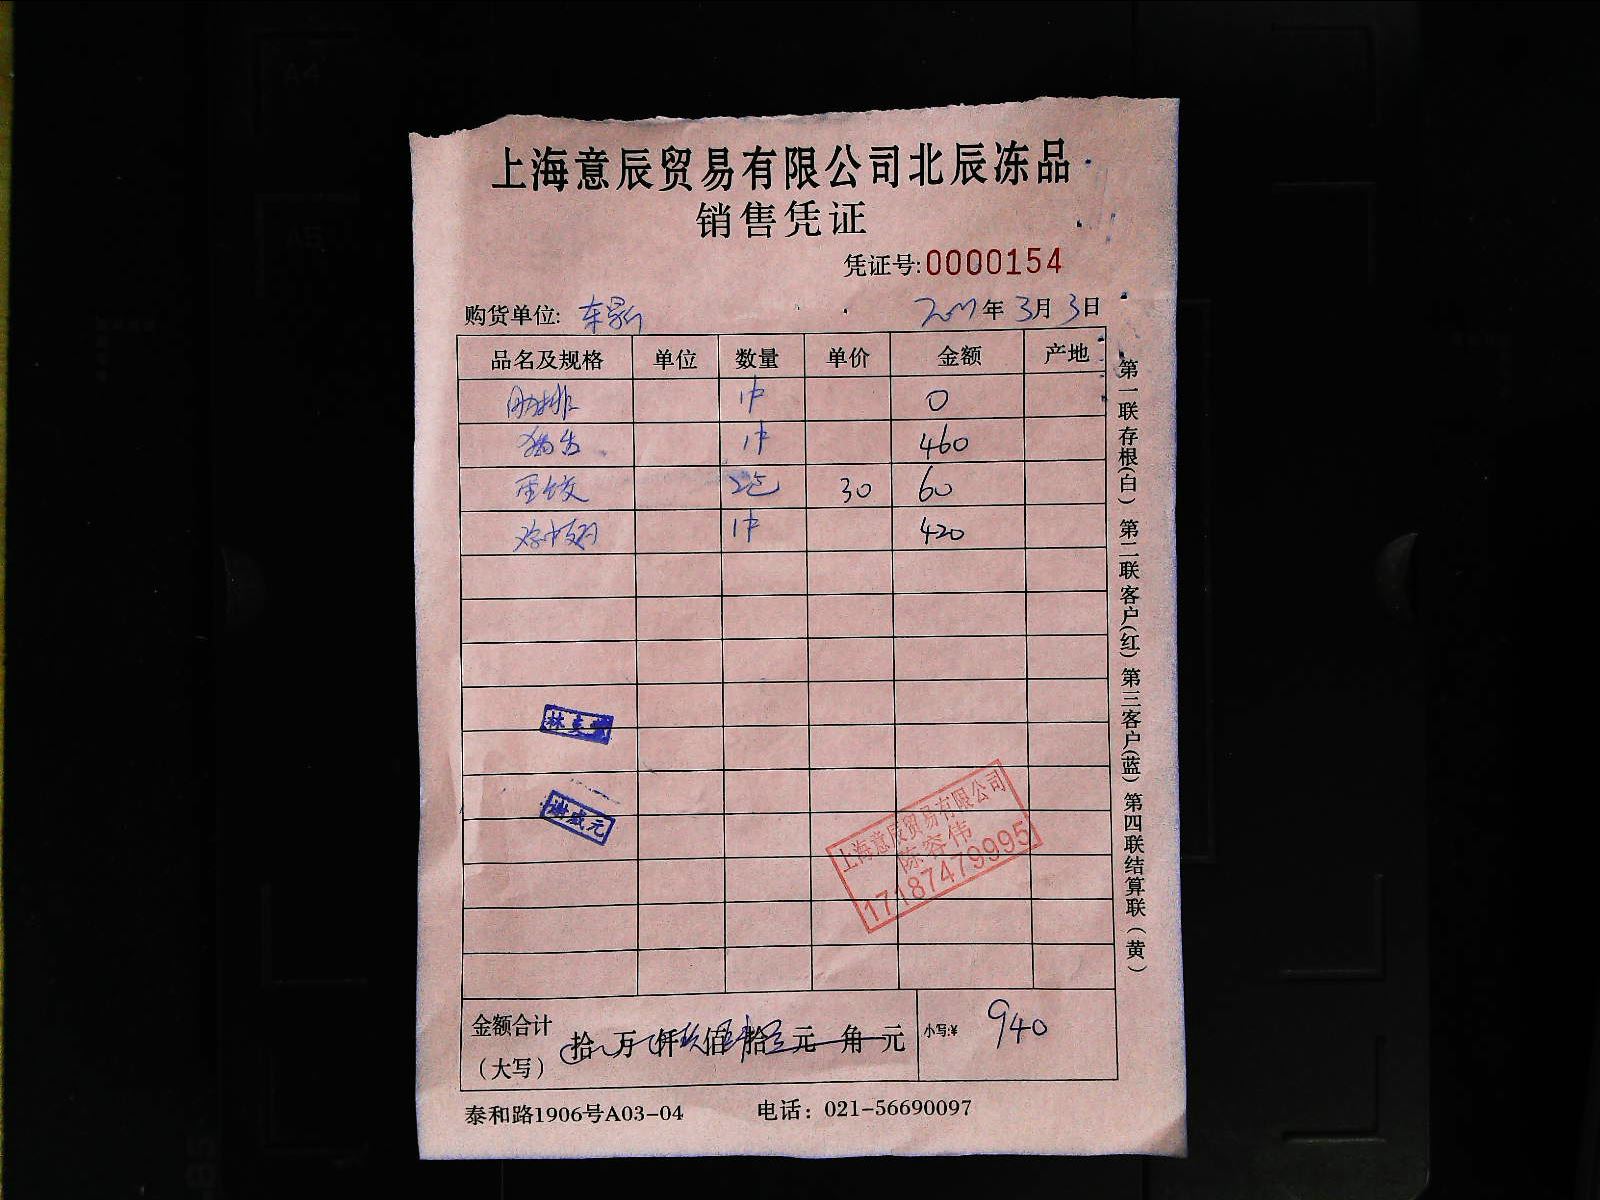 上海意辰贸易有限公司北辰冻品
销售凭证
凭证号:0000154
购货单位: 年3月3日
品名及规格 单位 数量 单价 金额 产地
肋排 1件 0
1件 460
蛋饺 2包 30 60
鸡中翅 1件 420
林
谢成元
上海意辰贸易有限公司
陈容伟
17187479995
金额合计
(大写)
拾 万 仟玖佰肆拾 元 角 元
小写:¥ 940
泰和路1906号A03-04 电话：021-56690097
第一联存根(白) 第二联客户(红) 第三客户(蓝) 第四联结算联(黄)